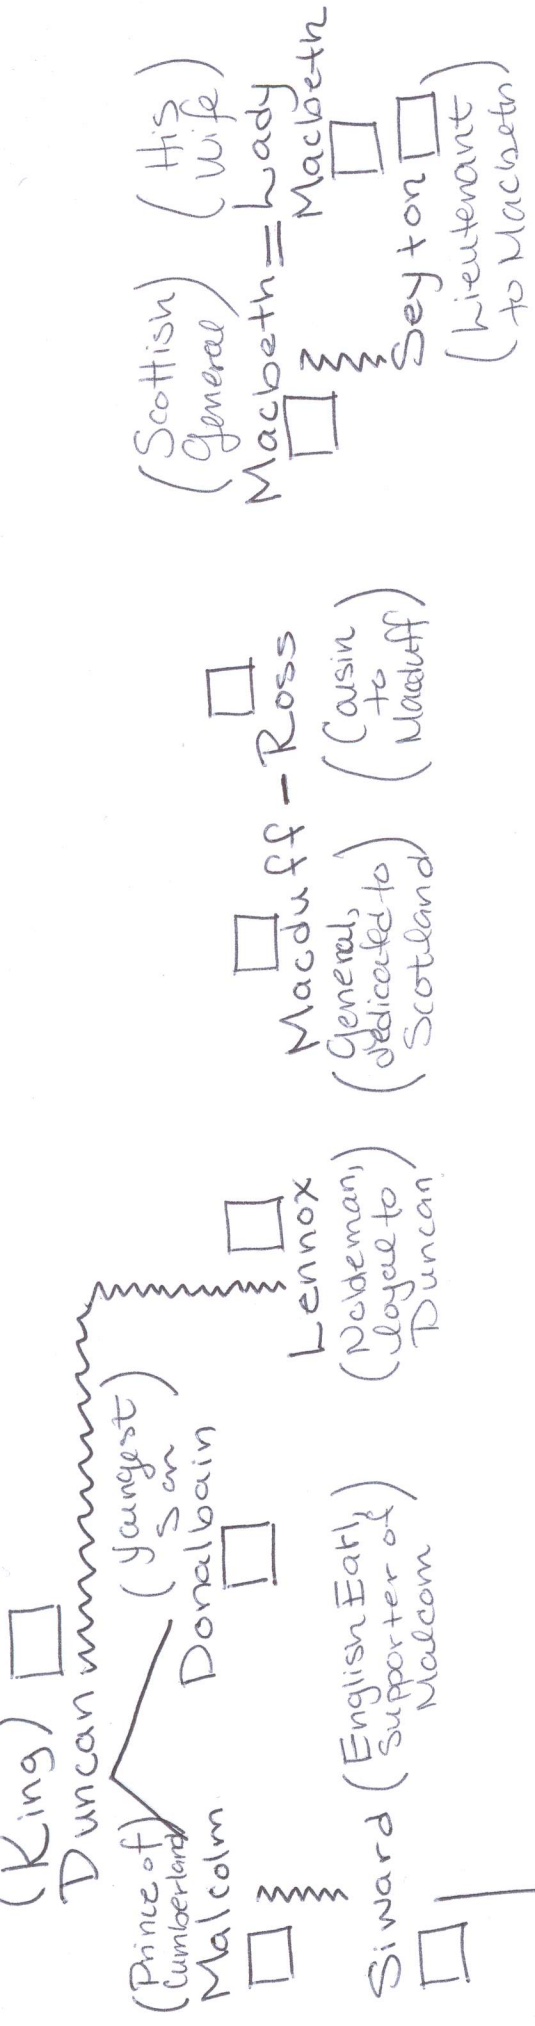 (King)
Duncan
(Prince of
Cumberland)
Malcolm
(Youngest
son)
Donalbain
Siward (English Earl,
Supporter of
Malcom)
Lennox
(Nobleman,
loyal to
Duncan)
Macduff - Ross
(General,
dedicated to
Scotland)
(Cousin
to
Macduff)
(Scottish
General)
(His
Wife)
Macbeth = Lady
Macbeth
Seyton
(Lieutenant
to Macbeth)